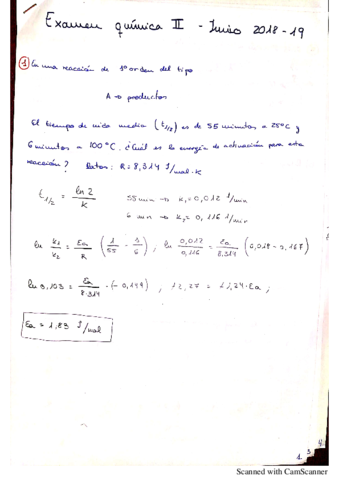 Examen química II - Junio 2018-19
① En una reacción de 1º orden del tipo
A → productos
El tiempo de vida media (t1/2) es de 55 minutos a 25ºC y
6 minutos a 100ºC. ¿Cuál es la energía de activación para esta
reacción? Datos: R = 8,314 J/mol·K
t1/2 = ln 2 / K    55 min → K1 = 0,012 1/min
6 min → K2 = 0,116 1/min
ln K1/K2 = Ea/R (1/55 - 1/6) , ln 0,012/0,116 = Ea/8,314 (0,018 - 0,167)
ln 0,103 = Ea/8,314 · (-0,149) ,
Ea = 1,83 J/mol
Scanned with CamScanner